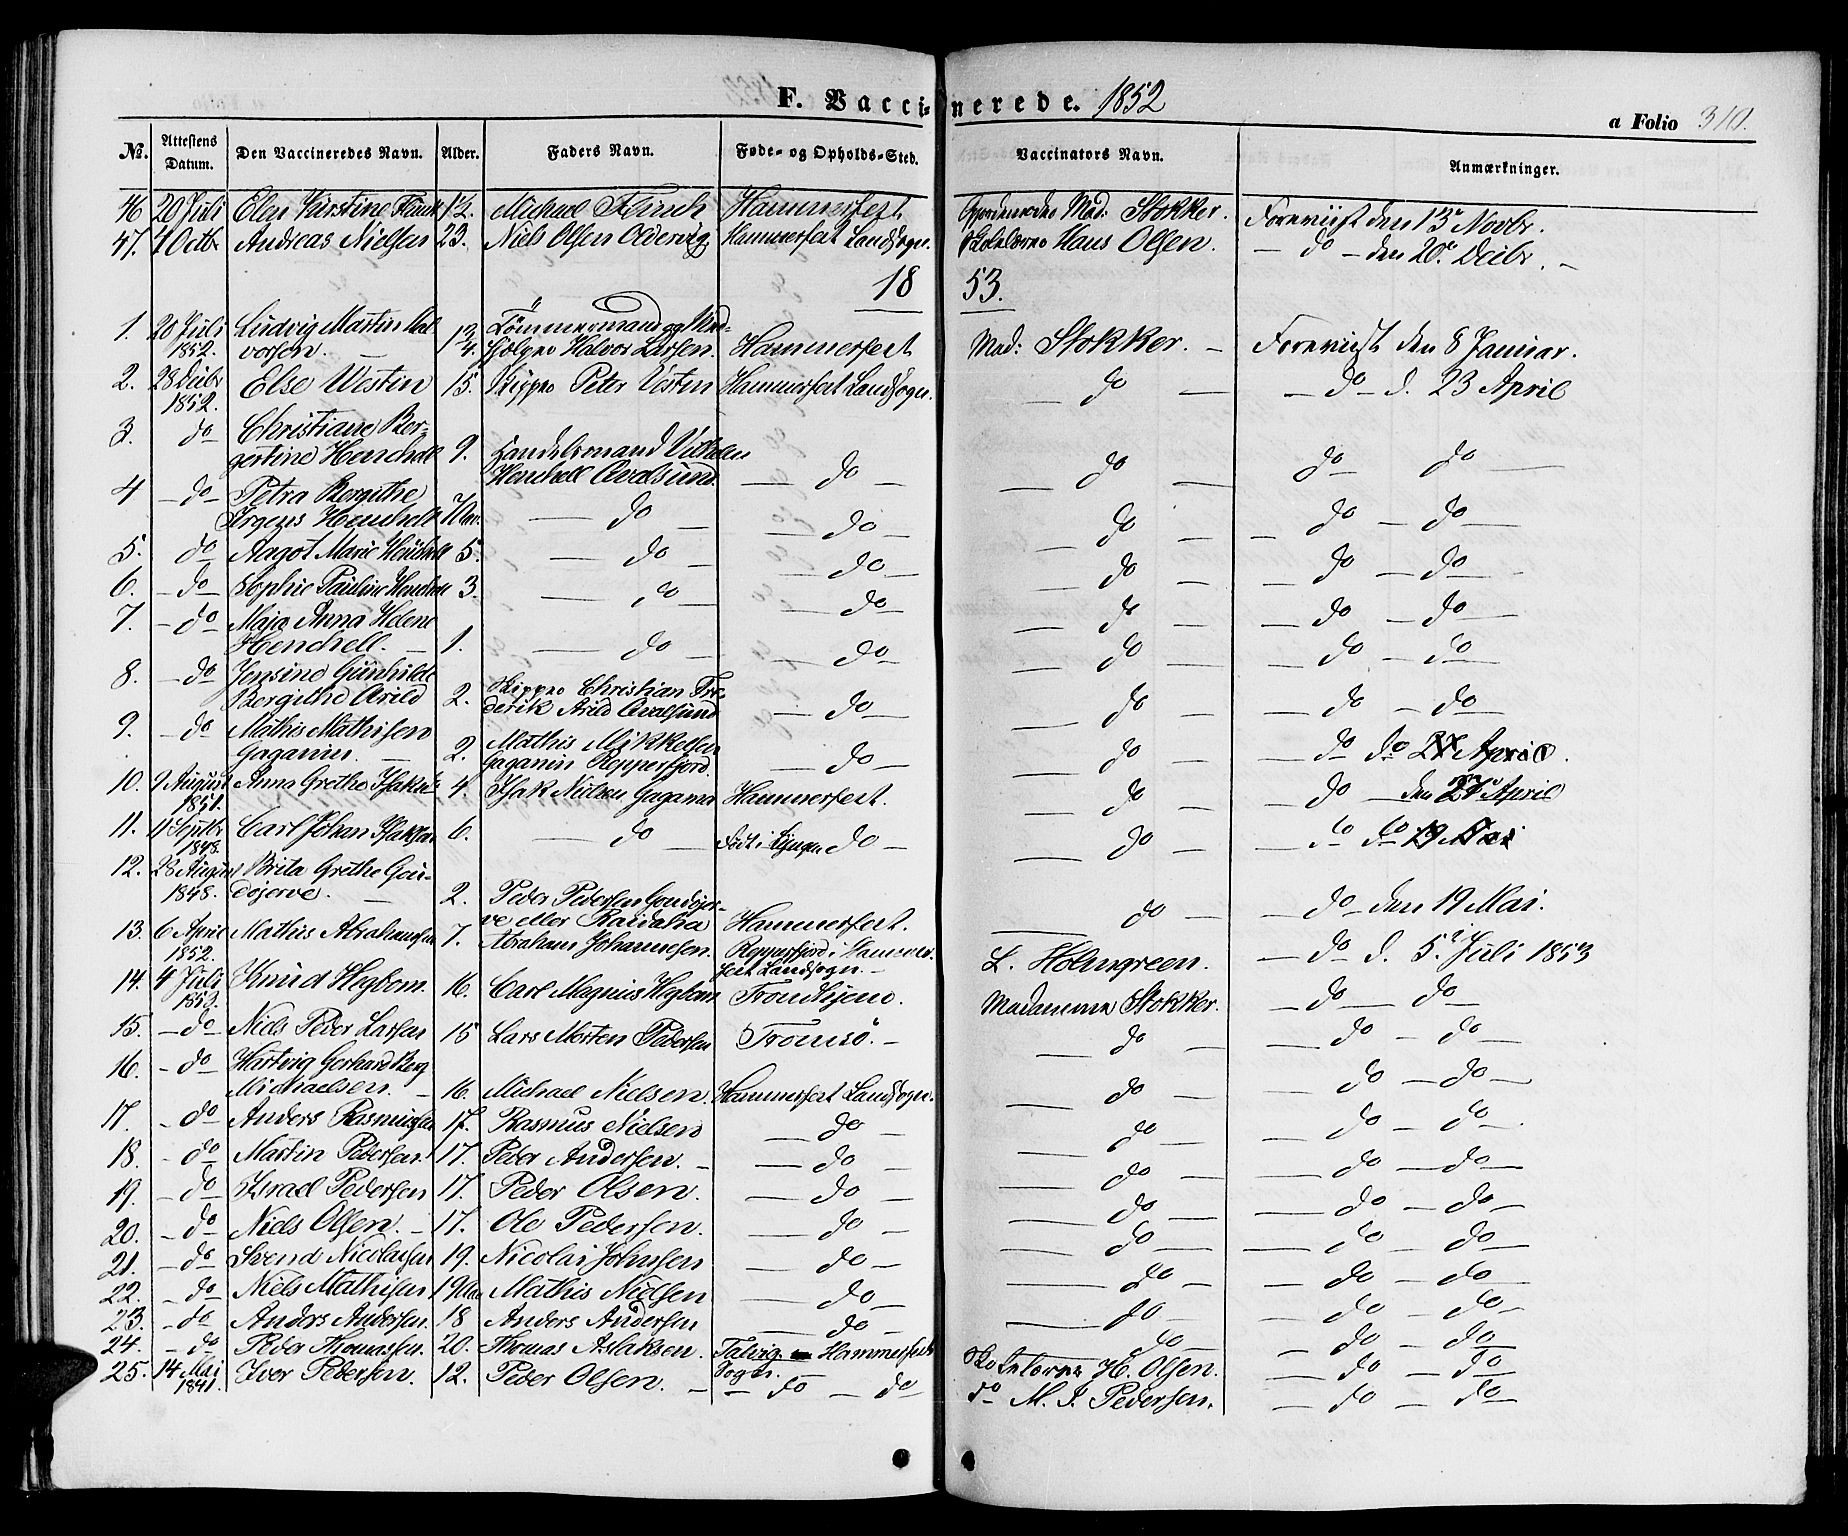 F. Vaccinerede. 1852
a Folio 310.
№. Attestens Datum. Den Vaccineredes Navn. Alder. Faders Navn. Føde- og Opholds-Sted. Vaccinators Navn. Anmærkninger.
46 20 Juli Elen Kirstine 12. Michael Hammerfest Mad: Stokker. Foreviist den 13de Novbr.
47. 4 Octbr Andreas Nielsen 23. Niels Olsen Hammerfest Landsogn. Skolelærer Hans Olsen. – do – den 20de Decbr. –
18 53.
1. 20 Juli Ludvig Martin Hal- Tømmermand og
1852. vorsen. – 13/4. Halvor Larsen. Hammerfest Mad: Stokker. – Foreviist den 8 Januar.
2. 28 Decbr Else Westin 15. Skipper Peter Vestin Hammerfest Landsogn. do — – do – d. 23 April
1852.
3. do Christiane Ber-
gertine Henchell 9. Handelsmand Vilhelm
Henchell Qvalsund. — do – — do — do do —
4 – do – Petra Bergithe
Jrgens Henchell 7 — do – — do – — do – – do – do –
5. do Aagot Marie Henchell 5. — do – — do – — do – – do – do –
6. – do – Sophie Pauline Henchell 3. — do – — do – — do – — do – do –
7. – do – Maja Anna Helene
Henchell. – 1. — do – — do – — do – — do – do –
8. – do – Jensine Gunhilde
Bergithe Arild 2. Skipper Christian Fre-
derik Arild Qvalsund — do – — do – — do – do –
9. – do – Mathis Mathisen
Gaganin. – 2. Mathis Mikkelsen
Gaganin Repperfjord. — do – — do – — do do April.
10. 9 August Anna Grethe Isaksd. 4. Isak Nielsen Gaganin Hammerfest. do – — do – den 27 April
1851.
11. 11 Septbr Carl Johan Isaksen 6. — do – født i Lyngen do – — do – — do do 19 Mai
1848.
12. 28 August Brita Grethe Gou-
1848. dojerve. – 2. Peder Pedersen Goudojer-
ve eller Raidaha Hammerfest. — do – — do – den 19 Mai.
13. 6 April Mathis Abrahamsen 7. Abraham Johannesen. Repperfjord i Hammer-
1852. fest Landsogn. – L. Holmgreen. – do – d. 5te Juli 1853
14. 4 Juli Knud Hegbom. 16. Carl Magnus Hegbom Trondhjem. Madamme Stokker. – do – do –
1853.
15. – do – Niels Peder Larsen 15 Lars Morten Pedersen Tromsø. – — do – — do – do –
16. – do – Hartvig Gerhard Berg
Michaelsen. – 16. Michael Nielsen. Hammerfest Landsogn. — do – — do – do –
17. – do – Anders Rasmussen 17. Rasmus Nielsen — do – — do – — do – do –
18. – do – Martin Pedersen. 17. Peder Andersen. – — do – — do – — do – do –
19. – do – Israel Pedersen 17. Peder Olsen. — do – — do – — do – do –
20. – do – Niels Olsen. – 17. Ole Pedersen. — do – — do – — do – do –
21. – do – Svend Nicolaisen 19. Nicolai Johnsen — do – — do – — do – do –
22. – do – Niels Mathisen 19 Mathis Nielsen — do – — do – — do – do –
23. – do Anders Andersen. 18 Anders Andersen — do – — do – — do – do –
24. – do Peder Thomassen. 20. Thomas Aslaksen. Talvig Hammerfest Sogn. Skolelærer H. Olsen. — do – do –
25. 14 Mai Iver Pedersen. 12. Peder Olsen. – – do – do do M. J. Pedersen. — do – do –
1841.